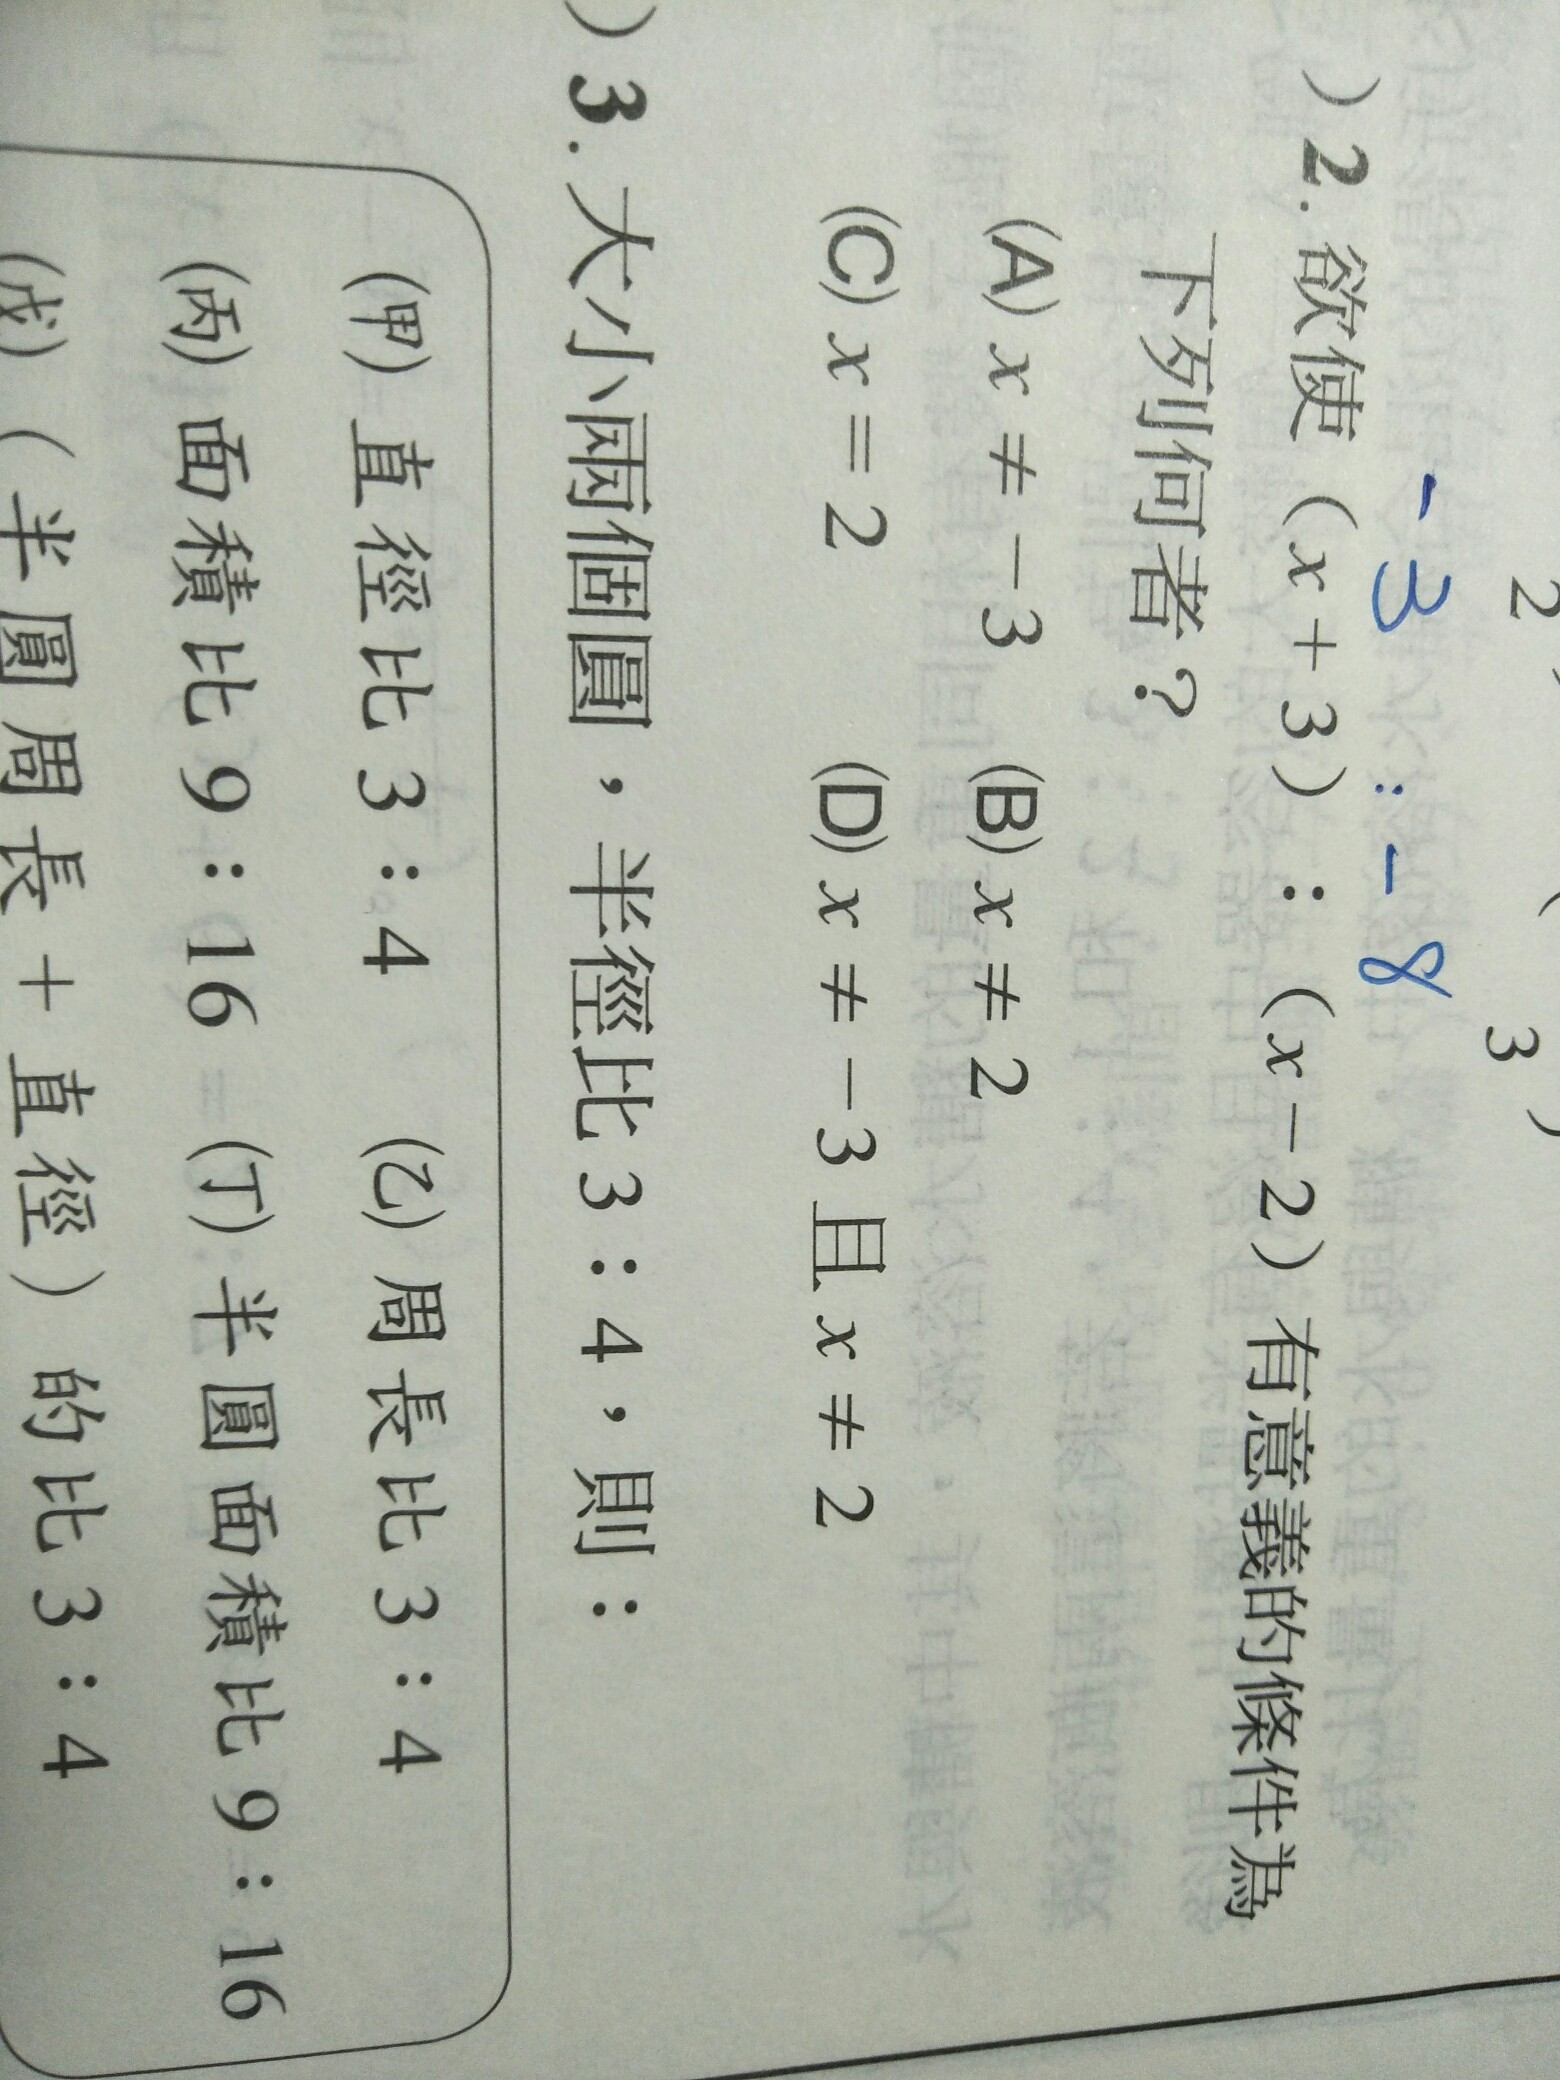 2, (
3 )
-3 : -8
) 2. 欲使 (x+3) : (x-2) 有意義的條件為
下列何者？
(A) x ≠ -3 (B) x ≠ 2
(C) x = 2 (D) x ≠ -3 且 x ≠ 2
) 3. 大小兩個圓，半徑比 3 : 4，則：
(甲) 直徑比 3 : 4 (乙) 周長比 3 : 4
(丙) 面積比 9 : 16 (丁) 半圓面積比 9 : 16
(戊) (半圓周長 + 直徑) 的比 3 : 4